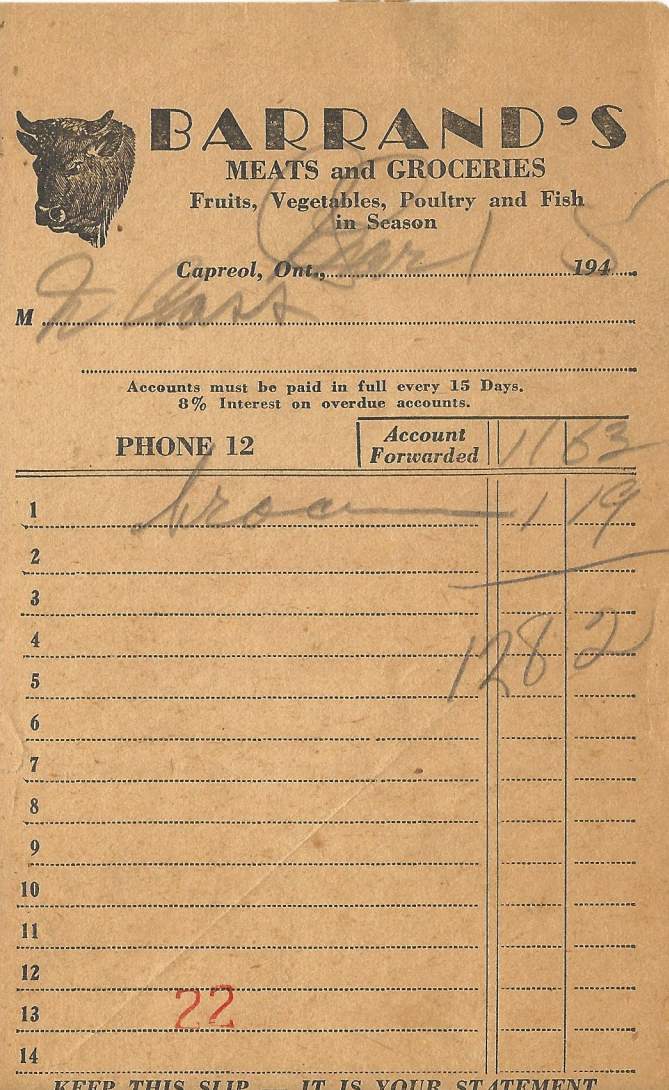 BARRAND'S
MEATS and GROCERIES
Fruits, Vegetables, Poultry and Fish
in Season
Capreol, Ont., 1 1945
M
Accounts must be paid in full every 15 Days.
8% Interest on overdue accounts.
PHONE 12 Account Forwarded 11 63
1 broom 1 19
2
3
4 12 82
5
6
7
8
9
10
11
12
13 22
14
KEEP THIS SLIP IT IS YOUR STATEMENT